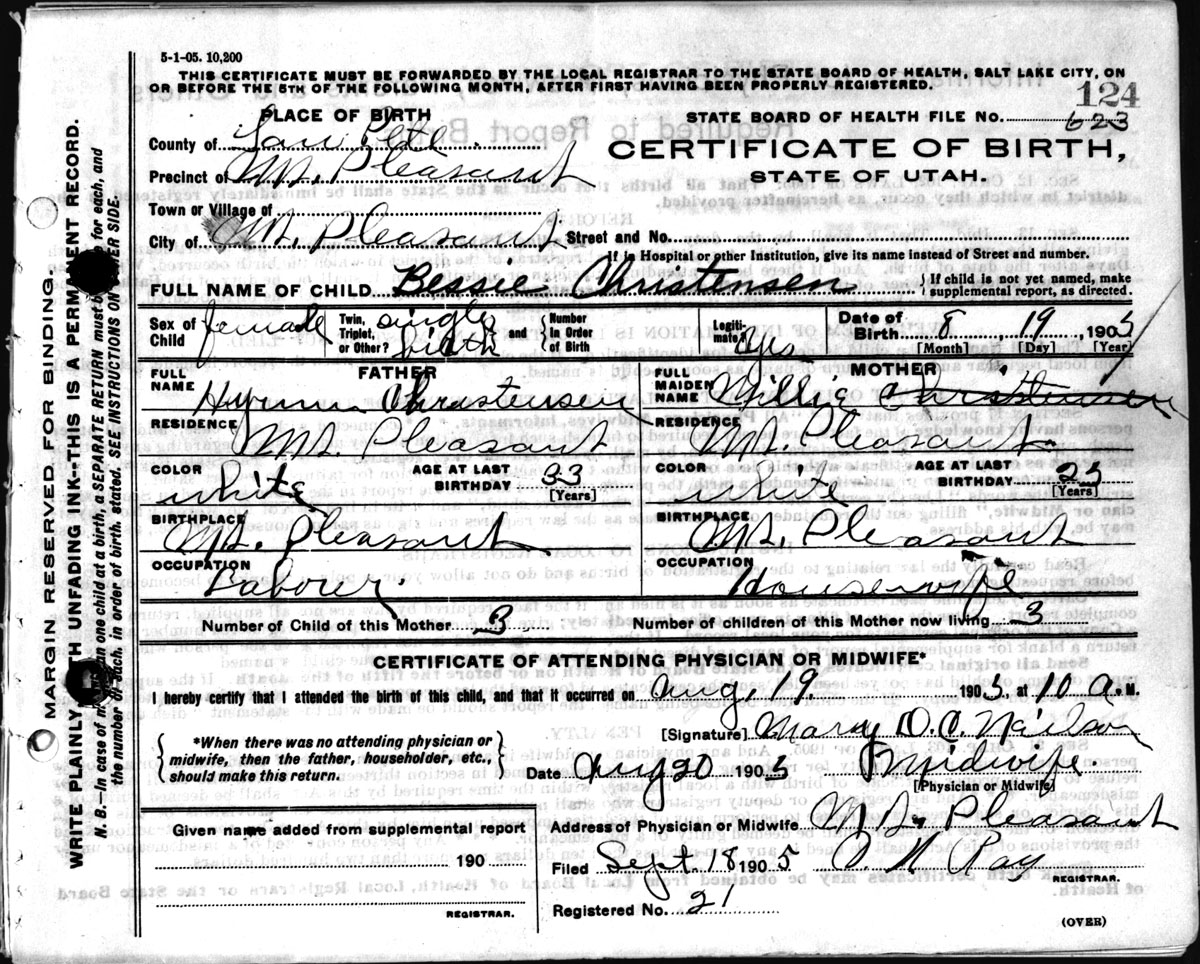 5-1-05. 10,200
THIS CERTIFICATE MUST BE FORWARDED BY THE LOCAL REGISTRAR TO THE STATE BOARD OF HEALTH, SALT LAKE CITY, ON
OR BEFORE THE 5TH OF THE FOLLOWING MONTH, AFTER FIRST HAVING BEEN PROPERLY REGISTERED.
124
PLACE OF BIRTH
STATE BOARD OF HEALTH FILE No. 623
County of San Pete
CERTIFICATE OF BIRTH,
Precinct of Mt. Pleasant
STATE OF UTAH.
Town or Village of
City of Mt. Pleasant Street and No.
If in Hospital or other Institution, give its name instead of Street and number.
FULL NAME OF CHILD Bessie Christensen { If child is not yet named, make supplemental report, as directed.
Sex of Child female Twin, Triplet, or Other? single birth and { Number In Order of Birth Legiti- mate? Yes Date of Birth 8 19, 1905
[Month] [Day] [Year]
FATHER
MOTHER
FULL NAME Hyrum Christensen
FULL MAIDEN NAME Millie Christensen
RESIDENCE Mt. Pleasant
RESIDENCE Mt. Pleasant
COLOR White AGE AT LAST BIRTHDAY 33 [Years]
COLOR White AGE AT LAST BIRTHDAY 25 [Years]
BIRTHPLACE Mt. Pleasant
BIRTHPLACE Mt. Pleasant
OCCUPATION Laborer
OCCUPATION Housewife
Number of Child of this Mother 3
Number of children of this Mother now living 3
CERTIFICATE OF ATTENDING PHYSICIAN OR MIDWIFE*
I hereby certify that I attended the birth of this child, and that it occurred on Aug, 19 1905 at 10 a. M.
[Signature] Mary D. C. Neilson
{ *When there was no attending physician or midwife, then the father, householder, etc., should make this return. }
Date Aug 20 1905 Midwife
[Physician or Midwife]
Given name added from supplemental report
Address of Physician or Midwife Mt. Pleasant
190
Filed Sept. 18 1905 Ray
REGISTRAR.
REGISTRAR.
Registered No. 21
(OVER)
MARGIN RESERVED FOR BINDING.
WRITE PLAINLY WITH UNFADING INK--THIS IS A PERMANENT RECORD.
N. B.--In case of more than one child at a birth, a SEPARATE RETURN must be made for each, and
the number of each, in order of birth, stated. SEE INSTRUCTIONS ON OTHER SIDE.